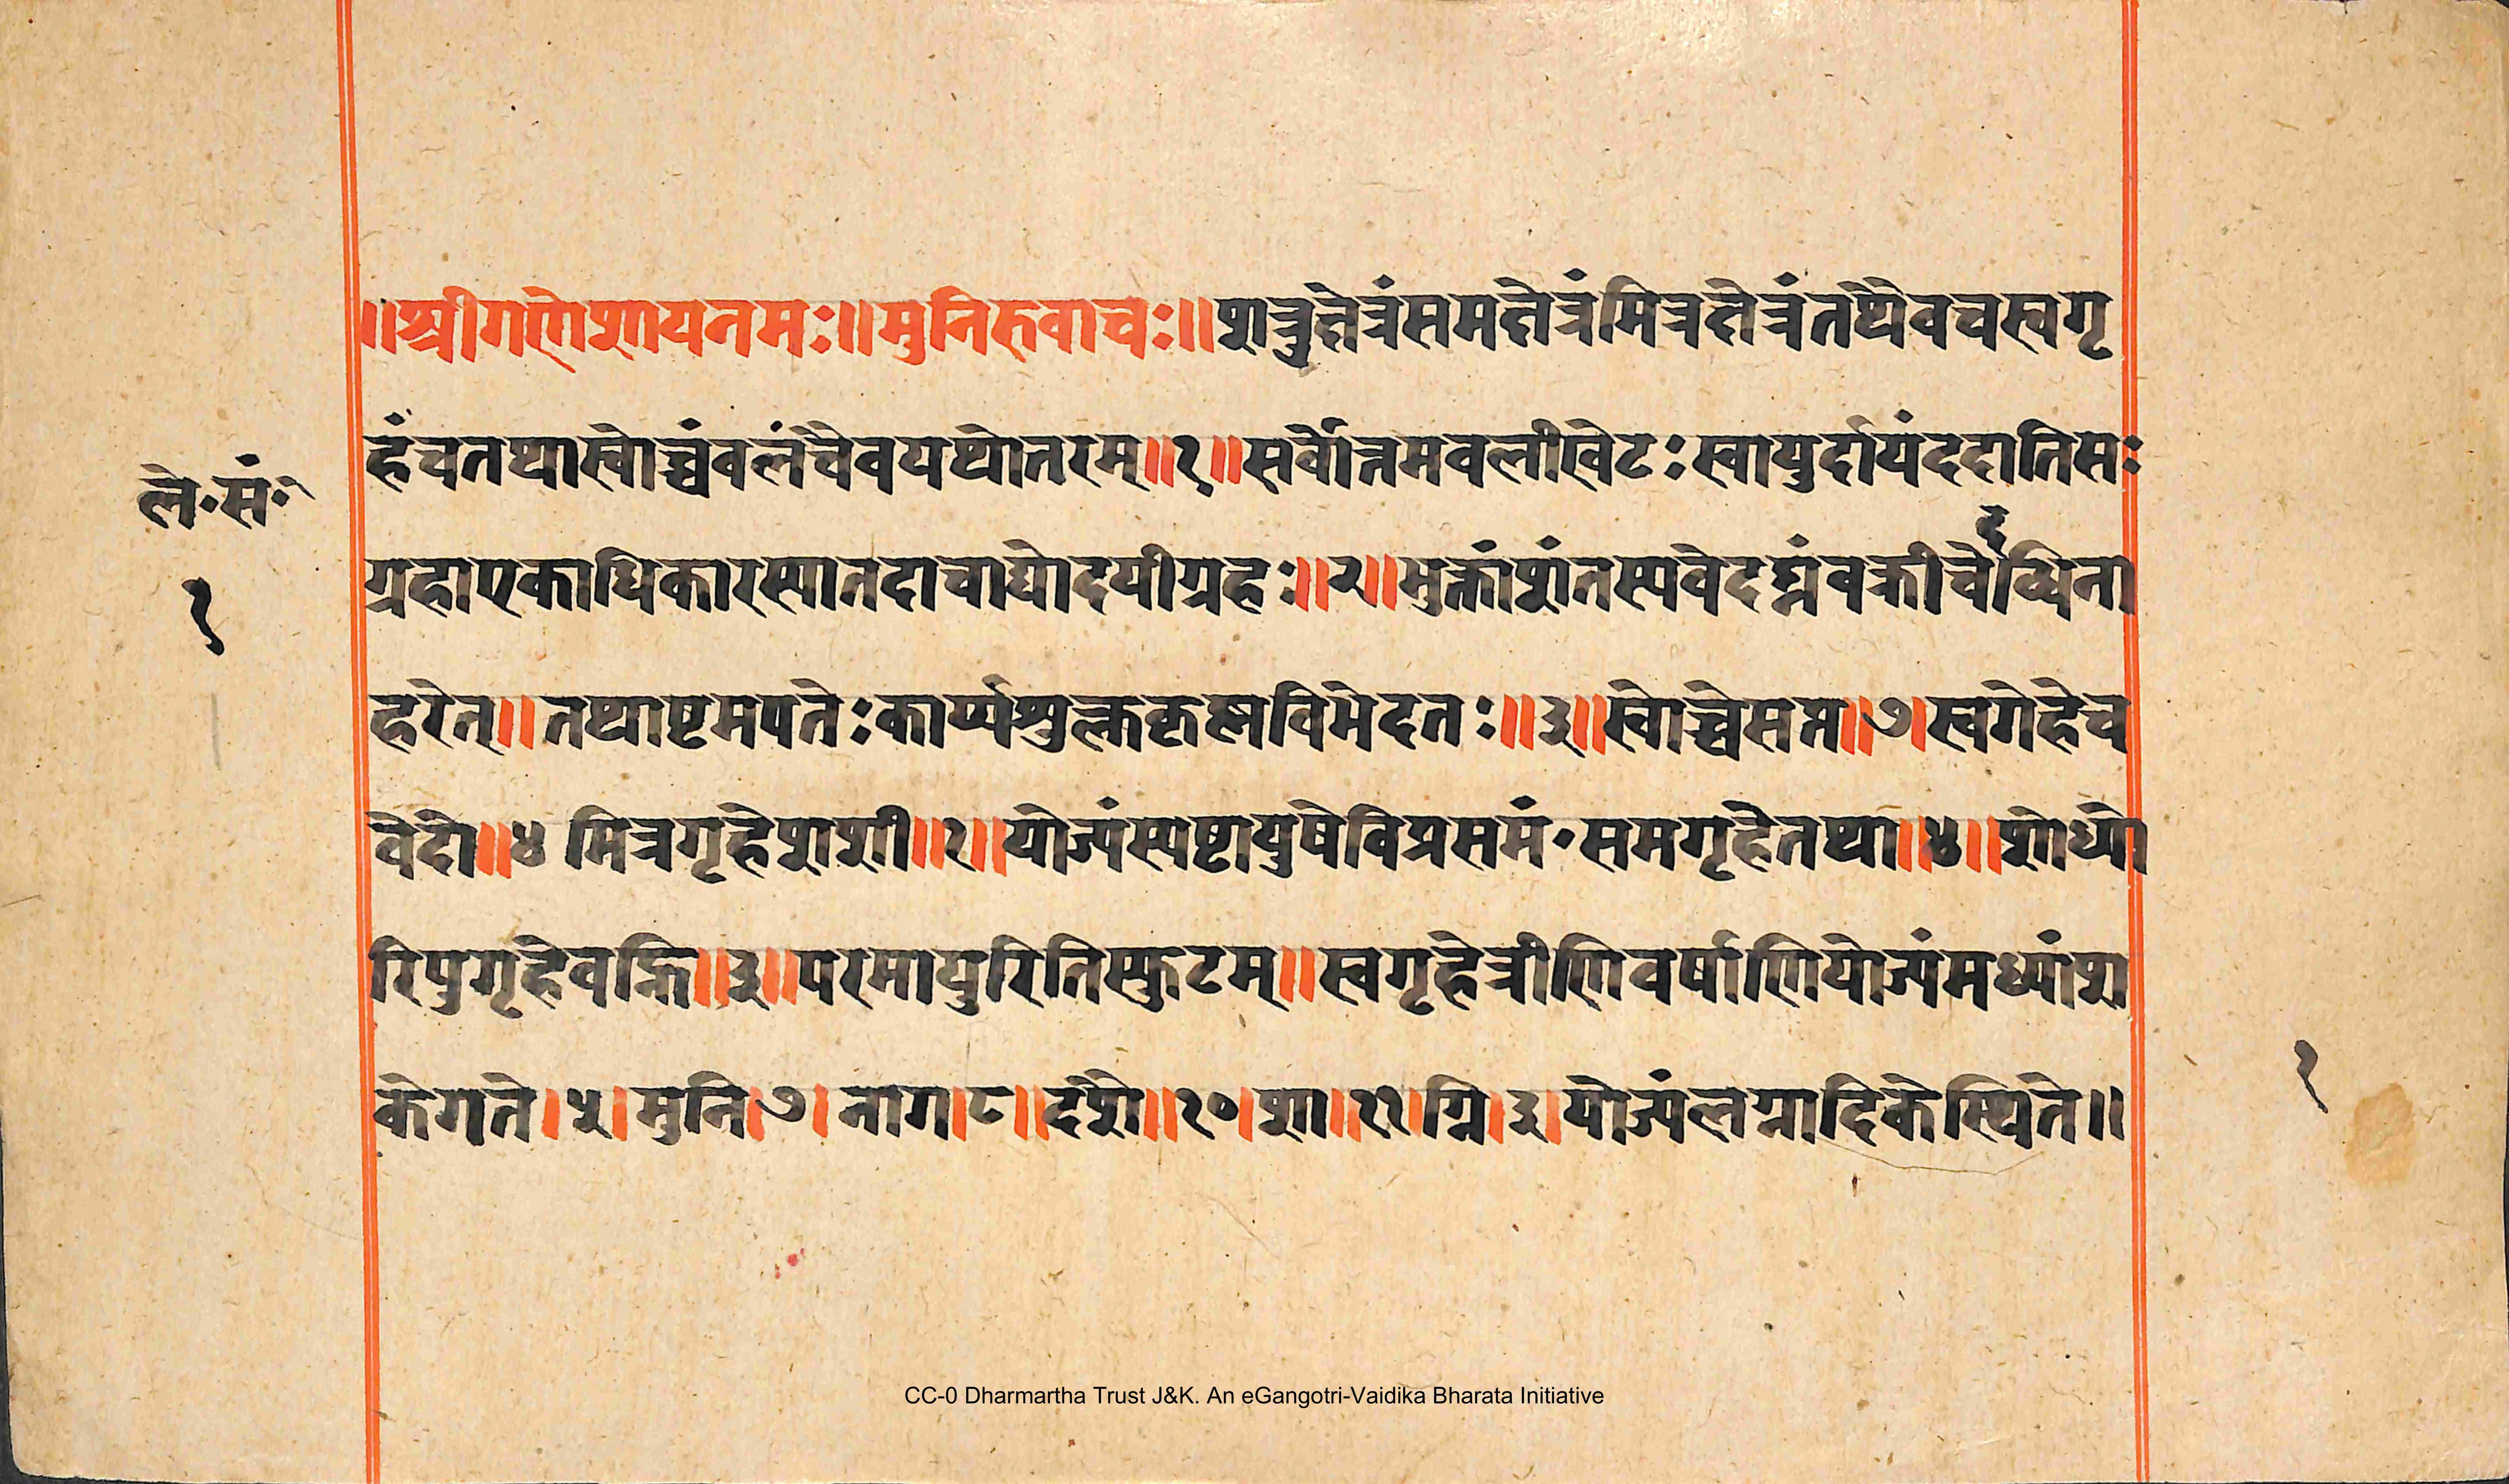 ॥श्रीगणेशायनमः॥मुनिरुवाचः॥शत्रुक्षेत्रंसमक्षेत्रंमित्रक्षेत्रंतथैवचस्वगृ
हंचतथास्वोच्चंवलंचैवयथोत्तरम्॥१॥सर्वोत्तमवलीखेटःस्वायुर्दायंददातिसः
ले॰सं॰
ग्रहाएकाधिकारस्यात्तदाचाद्योदयीग्रहः॥२॥भुक्तांशंतस्यवेदघ्नंवक्रीचेद्विना
१
हरेत्॥तथाष्टमपतेःकार्य्यशुक्लकृष्णविभेदतः॥३॥स्वोच्चेसप्त॥७।स्वगेहेच
वेदो॥४ मित्रगृहेशशी॥१॥योज्यंस्पष्टायुषेविप्रसमं॰समगृहेतथा॥४॥शोध्यो
रिपुगृहेवह्नि॥३॥परमायुरितिस्फुटम्॥स्वगृहेत्रीणिवर्षाणियोज्यंमध्यांश
केगते।५।मुनि।७।नाग।८॥दशे॥१०।शा॥११।ग्नि।३।योज्यंलग्नादिकेस्थिते॥
१
CC-0 Dharmartha Trust J&K. An eGangotri-Vaidika Bharata Initiative